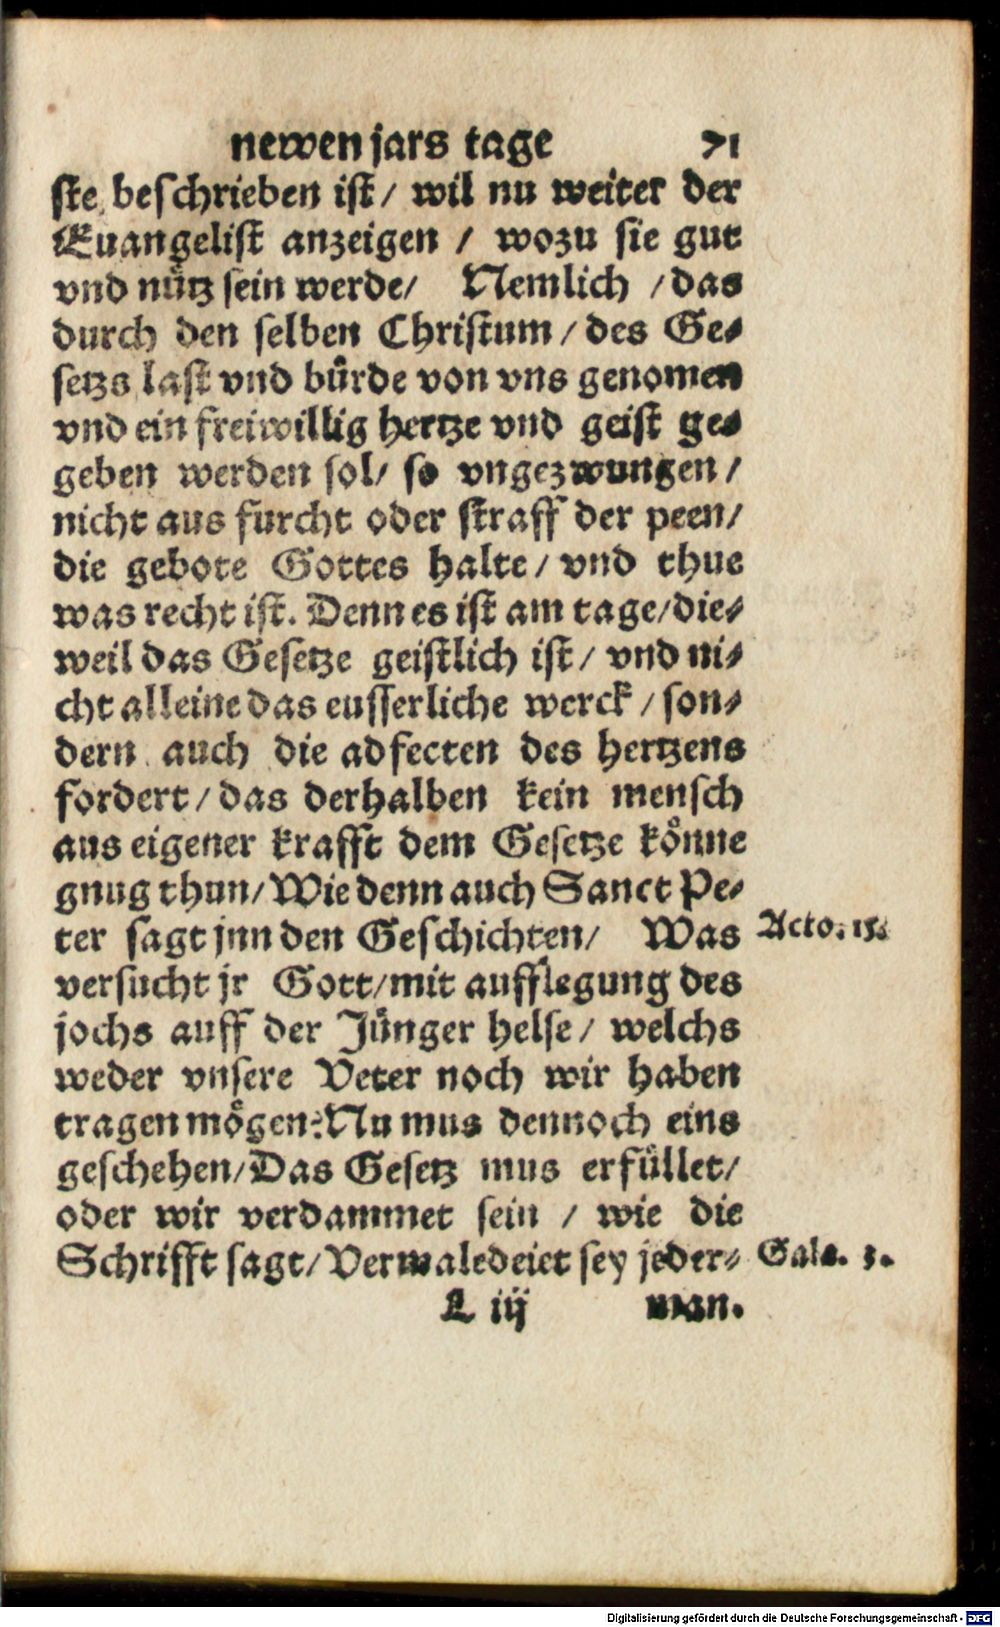 newen jars tage 71
ste beschrieben ist/ wil nu weiter der
Euangelist anzeigen / wozu sie gut
vnd nütz sein werde/ Nemlich /das
durch den selben Christum/des Ge⸗
setzs last vnd bürde von vns genomen
vnd ein freiwillig hertze vnd geist ge⸗
geben werden sol/ so vngezwungen/
nicht aus furcht oder straff der peen/
die gebote Gottes halte/vnd thue
was recht ist. Denn es ist am tage/die⸗
weil das Gesetze geistlich ist/ vnd ni⸗
cht alleine das eusserliche werck/son⸗
dern auch die adfecten des hertzens
fordert/das derhalben kein mensch
aus eigener krafft dem Gesetze könne
gnug thun/Wie denn auch Sanct Pe⸗
ter sagt jnn den Geschichten/ Was Acto. 15.
versucht jr Gott/mit aufflegung des
jochs auff der Jünger helse/ welchs
weder vnsere Veter noch wir haben
tragen mögen? Nu mus dennoch eins
geschehen/Das Gesetz mus erfüllet/
oder wir verdammet sein / wie die
Schrifft sagt/Vermaledeiet sey jeder⸗ Gala. 3.
L iij man.
Digitalisierung gefördert durch die Deutsche Forschungsgemeinschaft - DFG